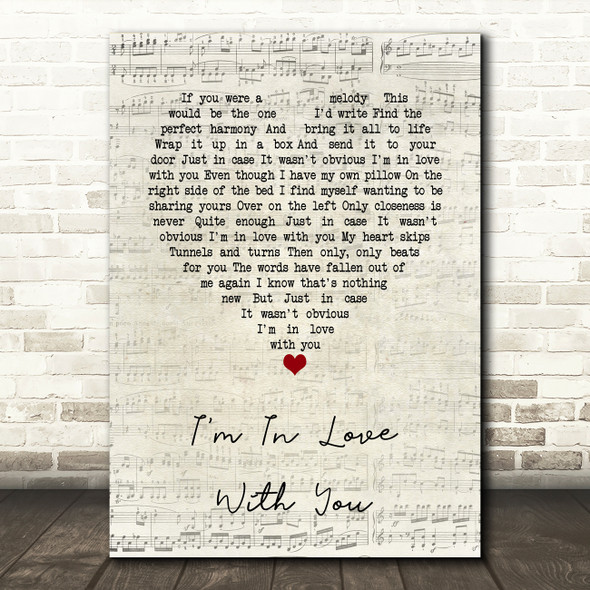 If you were a melody This
would be the one I'd write Find the
perfect harmony And bring it all to life
Wrap it up in a box And send it to your
door Just in case It wasn't obvious I'm in love
with you Even though I have my own pillow On the
right side of the bed I find myself wanting to be
sharing yours Over on the left Only closeness is
never Quite enough Just in case It wasn't
obvious I'm in love with you My heart skips
Tunnels and turns Then only, only beats
for you The words have fallen out of
me again I know that's nothing
new But Just in case
It wasn't obvious
I'm in love
with you
I'm In Love
With You